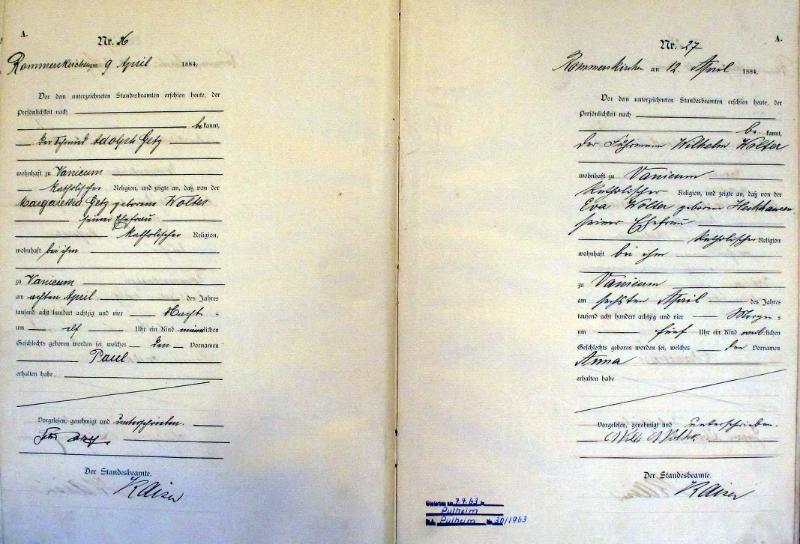 A.
Nr. 26
Rommerskirchen 9 April 1884.
Vor dem unterzeichneten Standesbeamten erschien heute, der
Persönlichkeit nach
bekannt,
der Schmied Adolph Getz
wohnhaft zu Vanicum
katholischer Religion, und zeigte an, daß von der
Margaretha Getz geborene Wolter
seiner Ehefrau
katholischer Religion,
wohnhaft bei ihm
zu Vanicum
am achten April des Jahres
tausend acht hundert achtzig und vier Nacht-
um elf Uhr ein Kind männlichen
Geschlechts geboren worden sei, welches den Vornamen
Paul
erhalten habe
Vorgelesen, genehmigt und unterschrieben.
Der Standesbeamte.
Kaiser
A.
Nr. 27
Rommerskirchen am 12 April 1884.
Vor dem unterzeichneten Standesbeamten erschien heute, der
Persönlichkeit nach
bekannt,
der Fuhrmann Wilhelm Wolter
wohnhaft zu Vanicum
katholischer Religion, und zeigte an, daß von der
Eva Wolter geborene
seiner Ehefrau
katholischer Religion
wohnhaft bei ihm
zu Vanicum
am sechsten April des Jahres
tausend acht hundert achtzig und vier Morgens
um fünf Uhr ein Kind weiblichen
Geschlechts geboren worden sei, welches den Vornamen
Anna
erhalten habe
Vorgelesen, genehmigt und unterschrieben.
Wilh Wolter
Der Standesbeamte.
Kaiser
am 7.9.63 in
Pulheim
Pulheim Nr. 30/1963